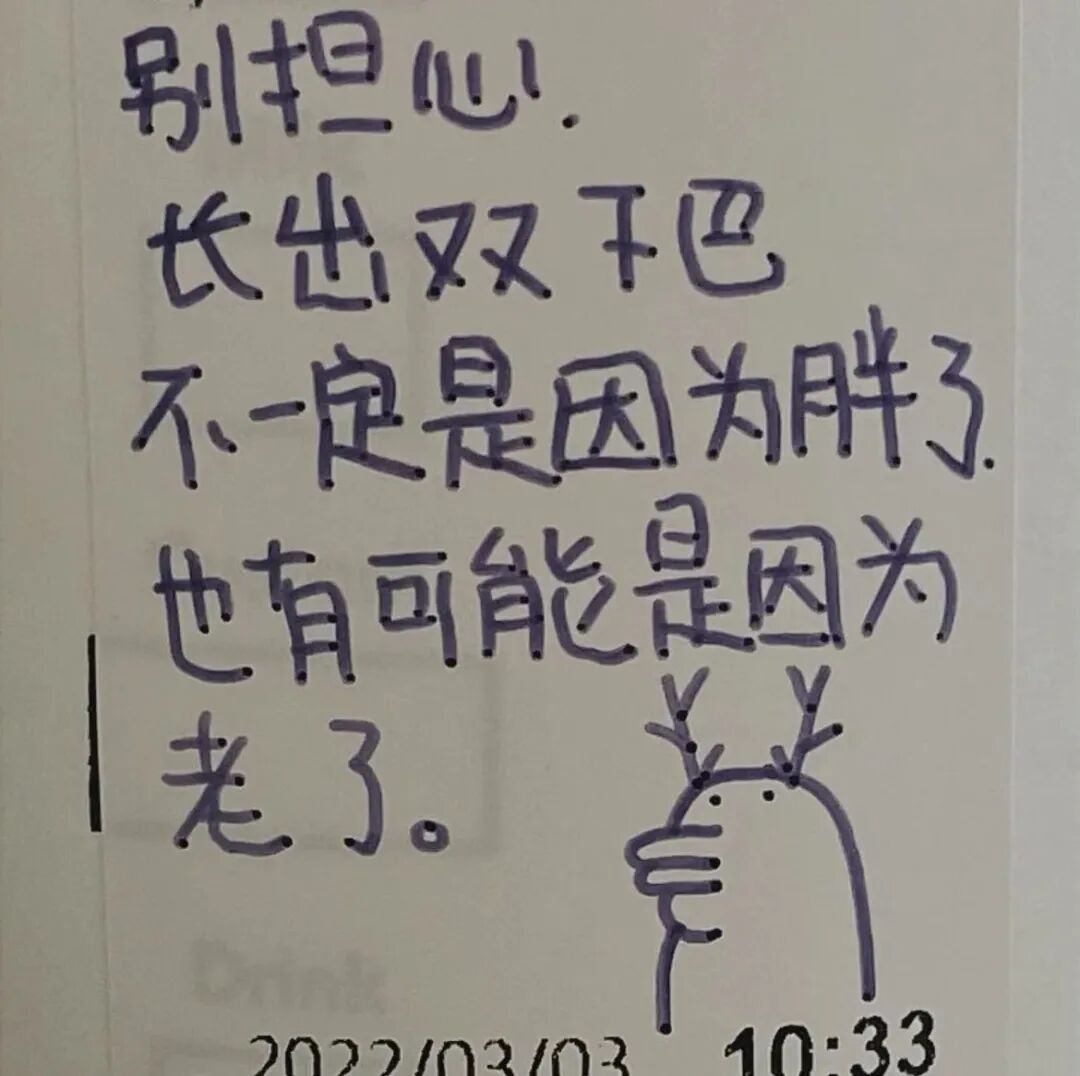 别担心.
长出双下巴
不一定是因为胖了.
也有可能是因为
老了。
Drink
2022/03/03 10:33